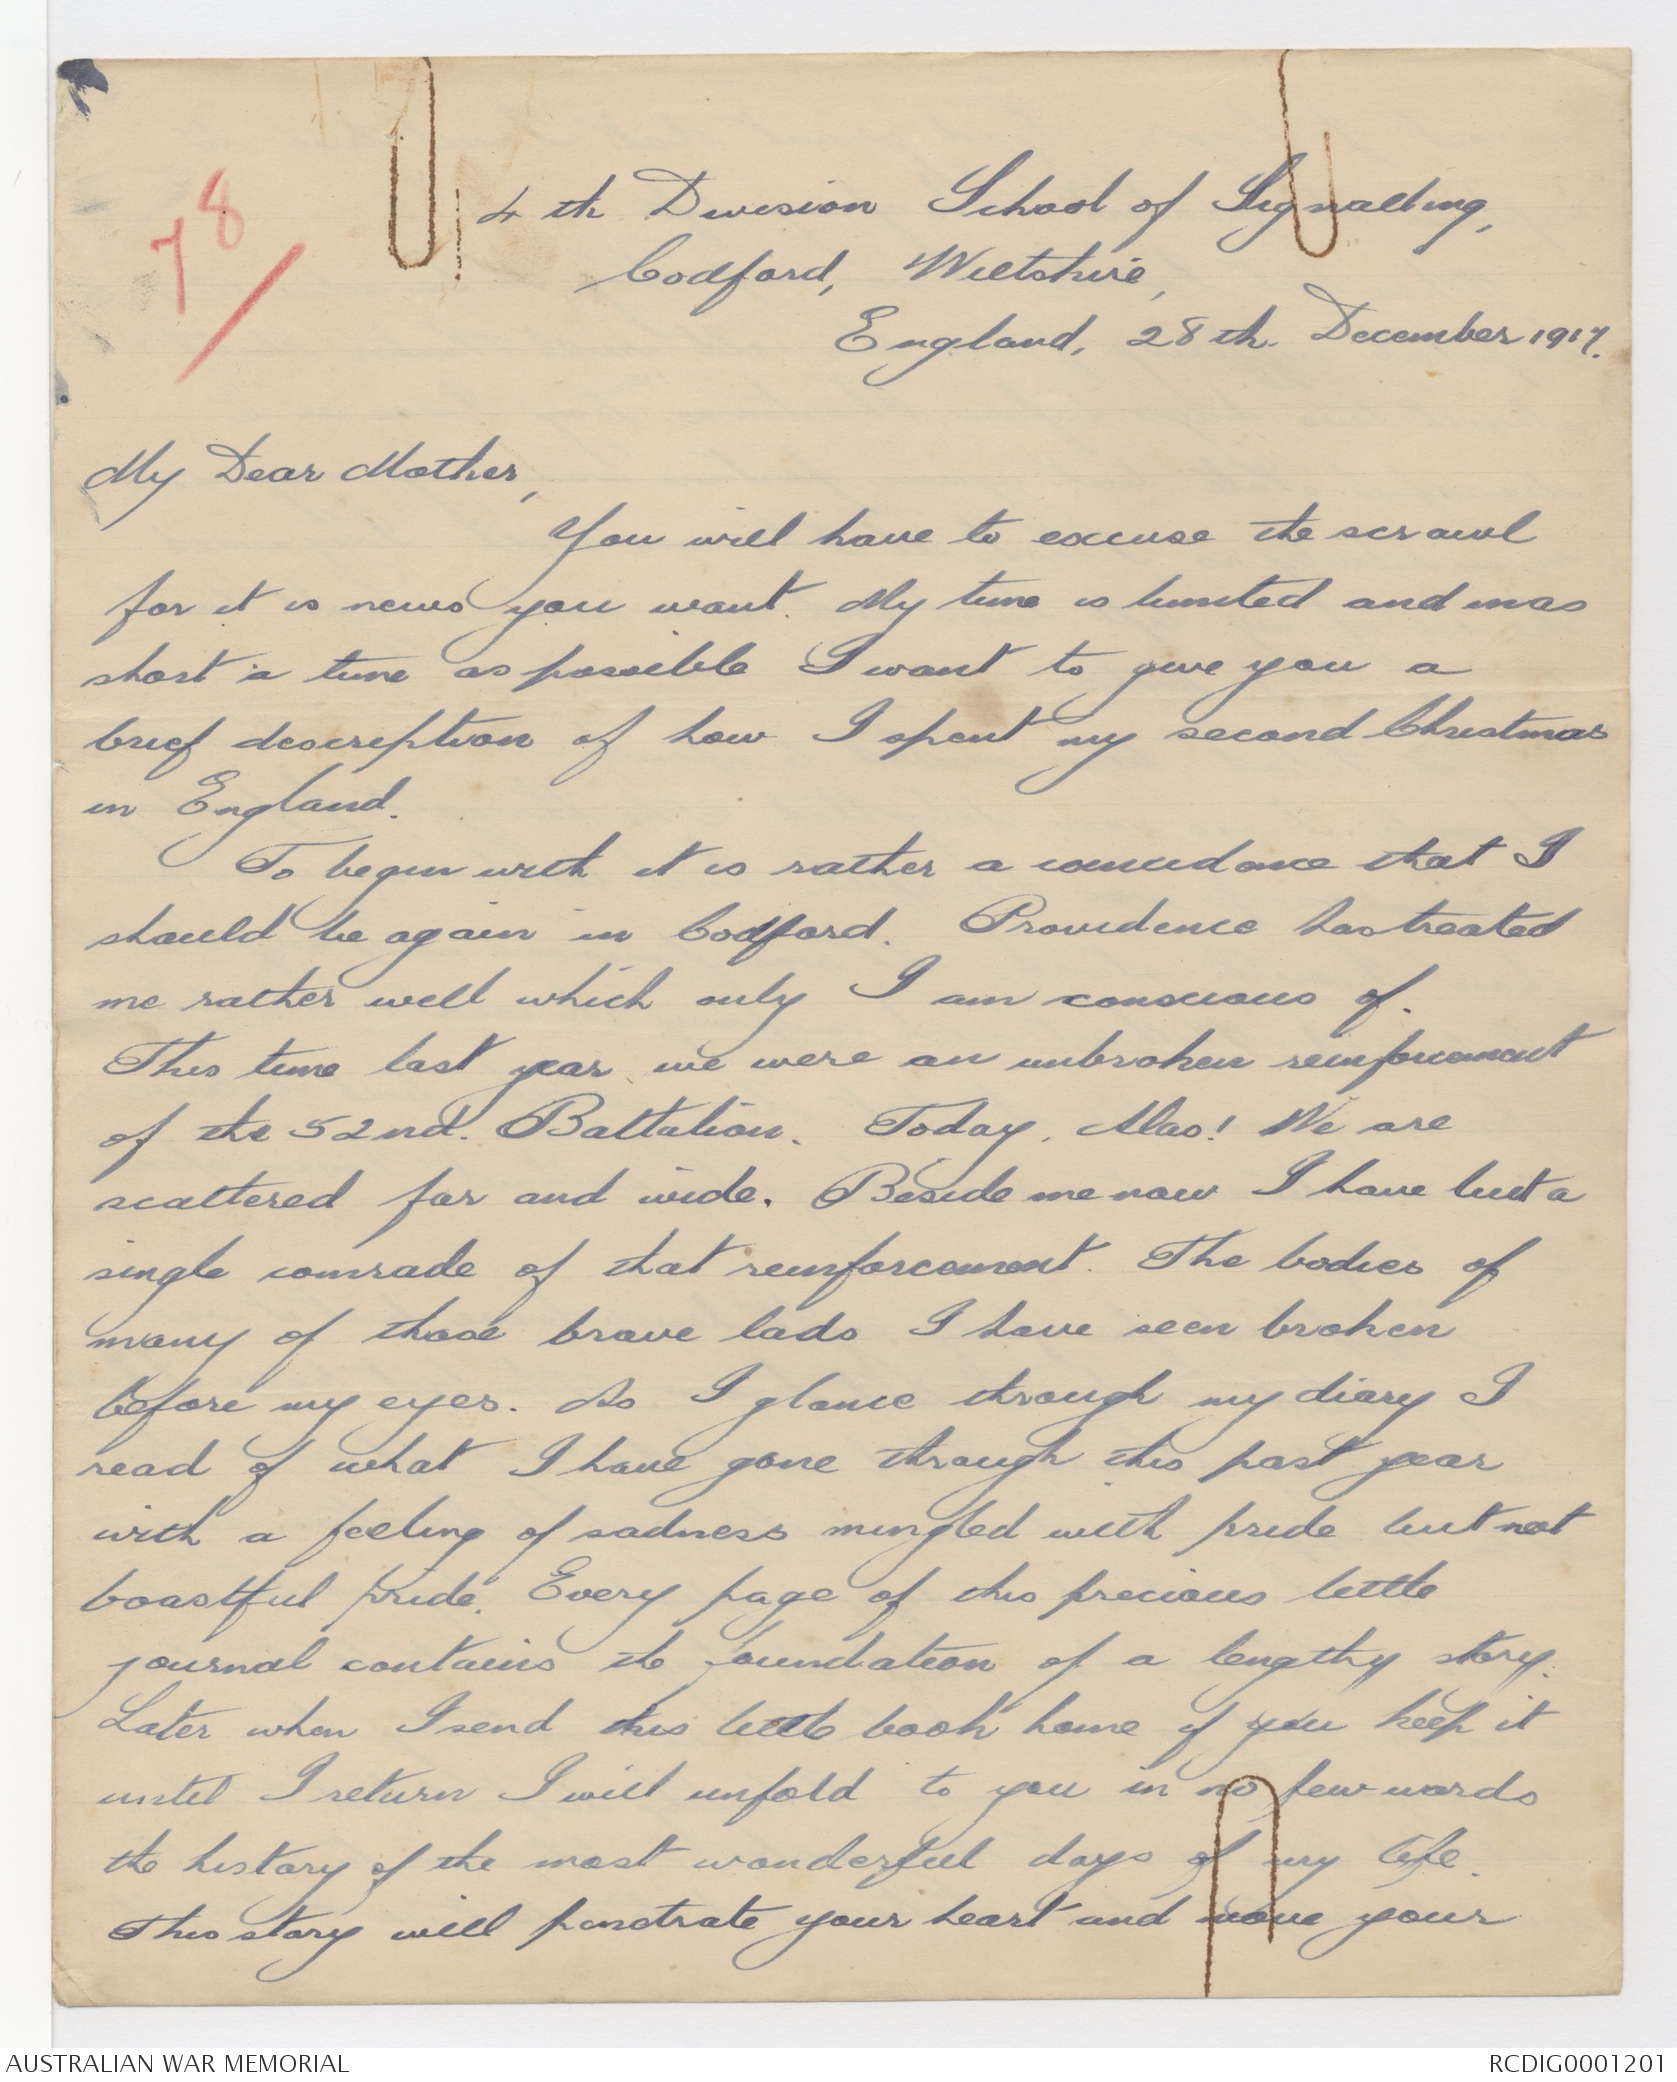 78
4th Division School of Signalling,
Codford, Wiltshire,
England, 28th. December 1917.
My Dear Mother,
You will have to excuse the scrawl
for it is news you want. My time is limited and in as
short a time as possible I want to give you a
brief description of how I spent my second Christmas
in England.
To begin with it is rather a coincidance that I
should be again in Codford. Providence has treated
me rather well which only I am conscious of.
This time last year we were an unbroken reinforcement
of the 52nd. Battalion. Today, Alas! We are
scattered far and wide. Beside me now I have but a
single comrade of that reinforcement. The bodies of
many of those brave lads I have seen broken
before my eyes. As I glance through my diary I
read of what I have gone through this past year
with a feeling of sadness mingled with pride but not
boastful pride. Every page of this precious little
journal contains the foundation of a lengthy story.
Later when I send this little book home if you keep it
until I return I will unfold to you in no few words
the history of the most wonderful days of my life.
This story will penetrate your heart and move your
AUSTRALIAN WAR MEMORIAL
RCDIG0001201